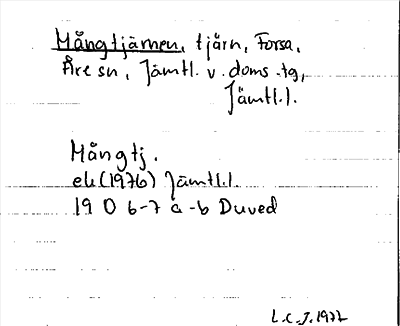 Mångtjärnen, tjärn, Forsa,
Åre sn, Jämtl. v. doms.tg,
Jämtl.l.
Mångtj.
ek (1976) Jämtl.l.
19 D 6-7 a-b Duved
L.C.J. 1977